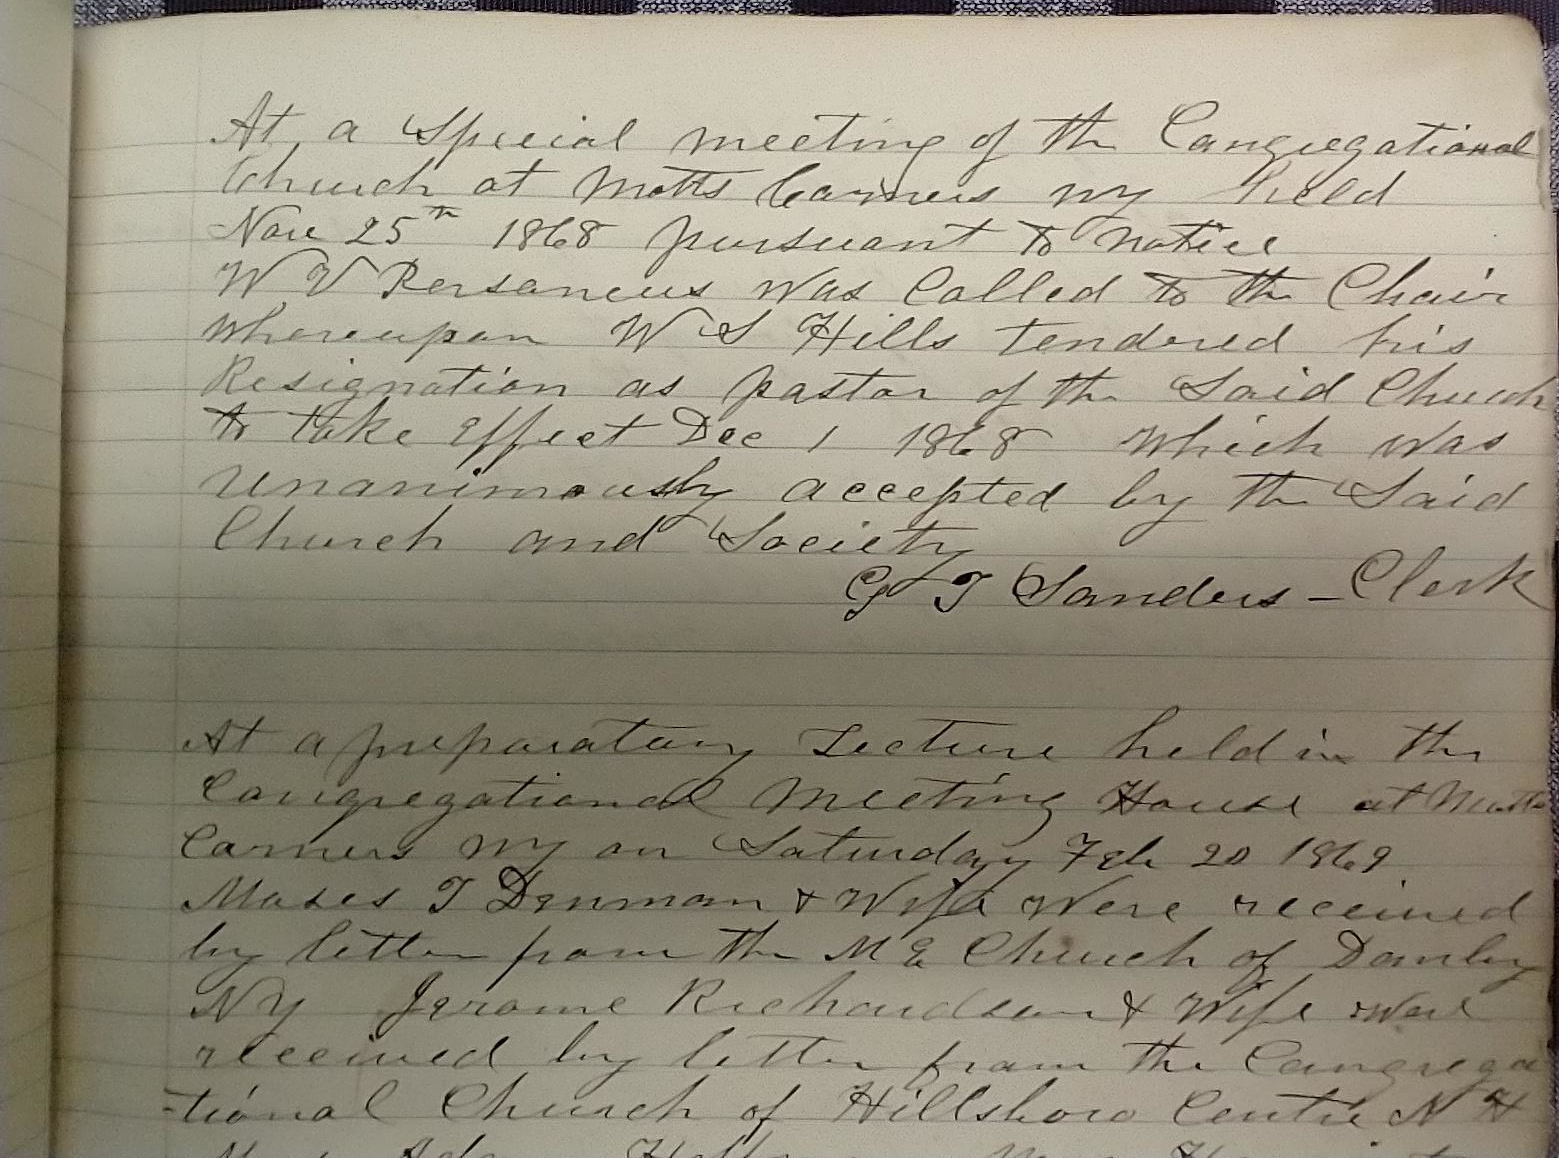 At a Special meeting of the Congregational
Church at Motts Corners NY held
Nov 25th 1868 pursuant to notice
W V Personeus was Called to the Chair
whereupon W S Hills tendered his
Resignation as pastor of the Said Church
to take Effect Dec 1 1868 which was
Unanimously accepted by the Said
Church and Society
G T Sanders - Clerk
At a preparatory Lecture held in the
Congregational Meeting House at Motts
Corners NY on Saturday Feb 20 1869
Moses T Denman & Wife Were received
by letter from the M E Church of Danby
NY Jerome Richardson & Wife were
received by letter from the Congrega
-tional Church of Hillsboro Centre N H